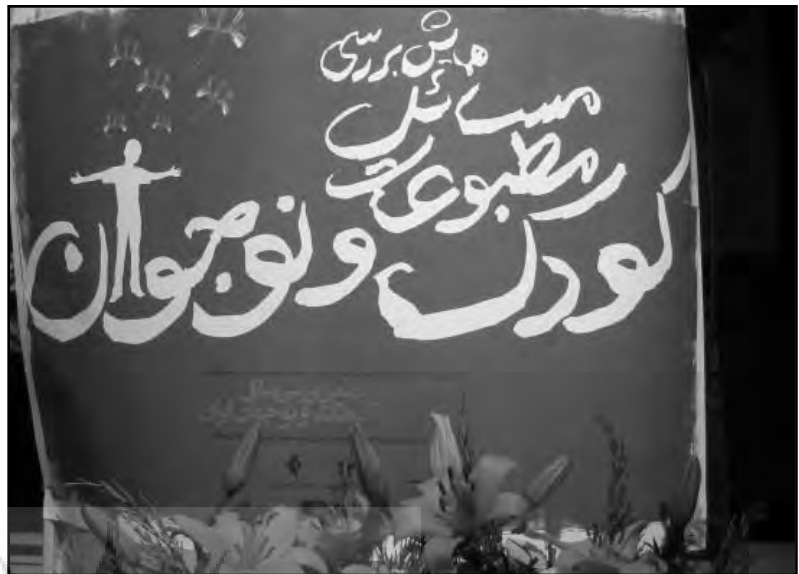 همایش بررسی
مسائل
مطبوعات
کودک و نوجوان